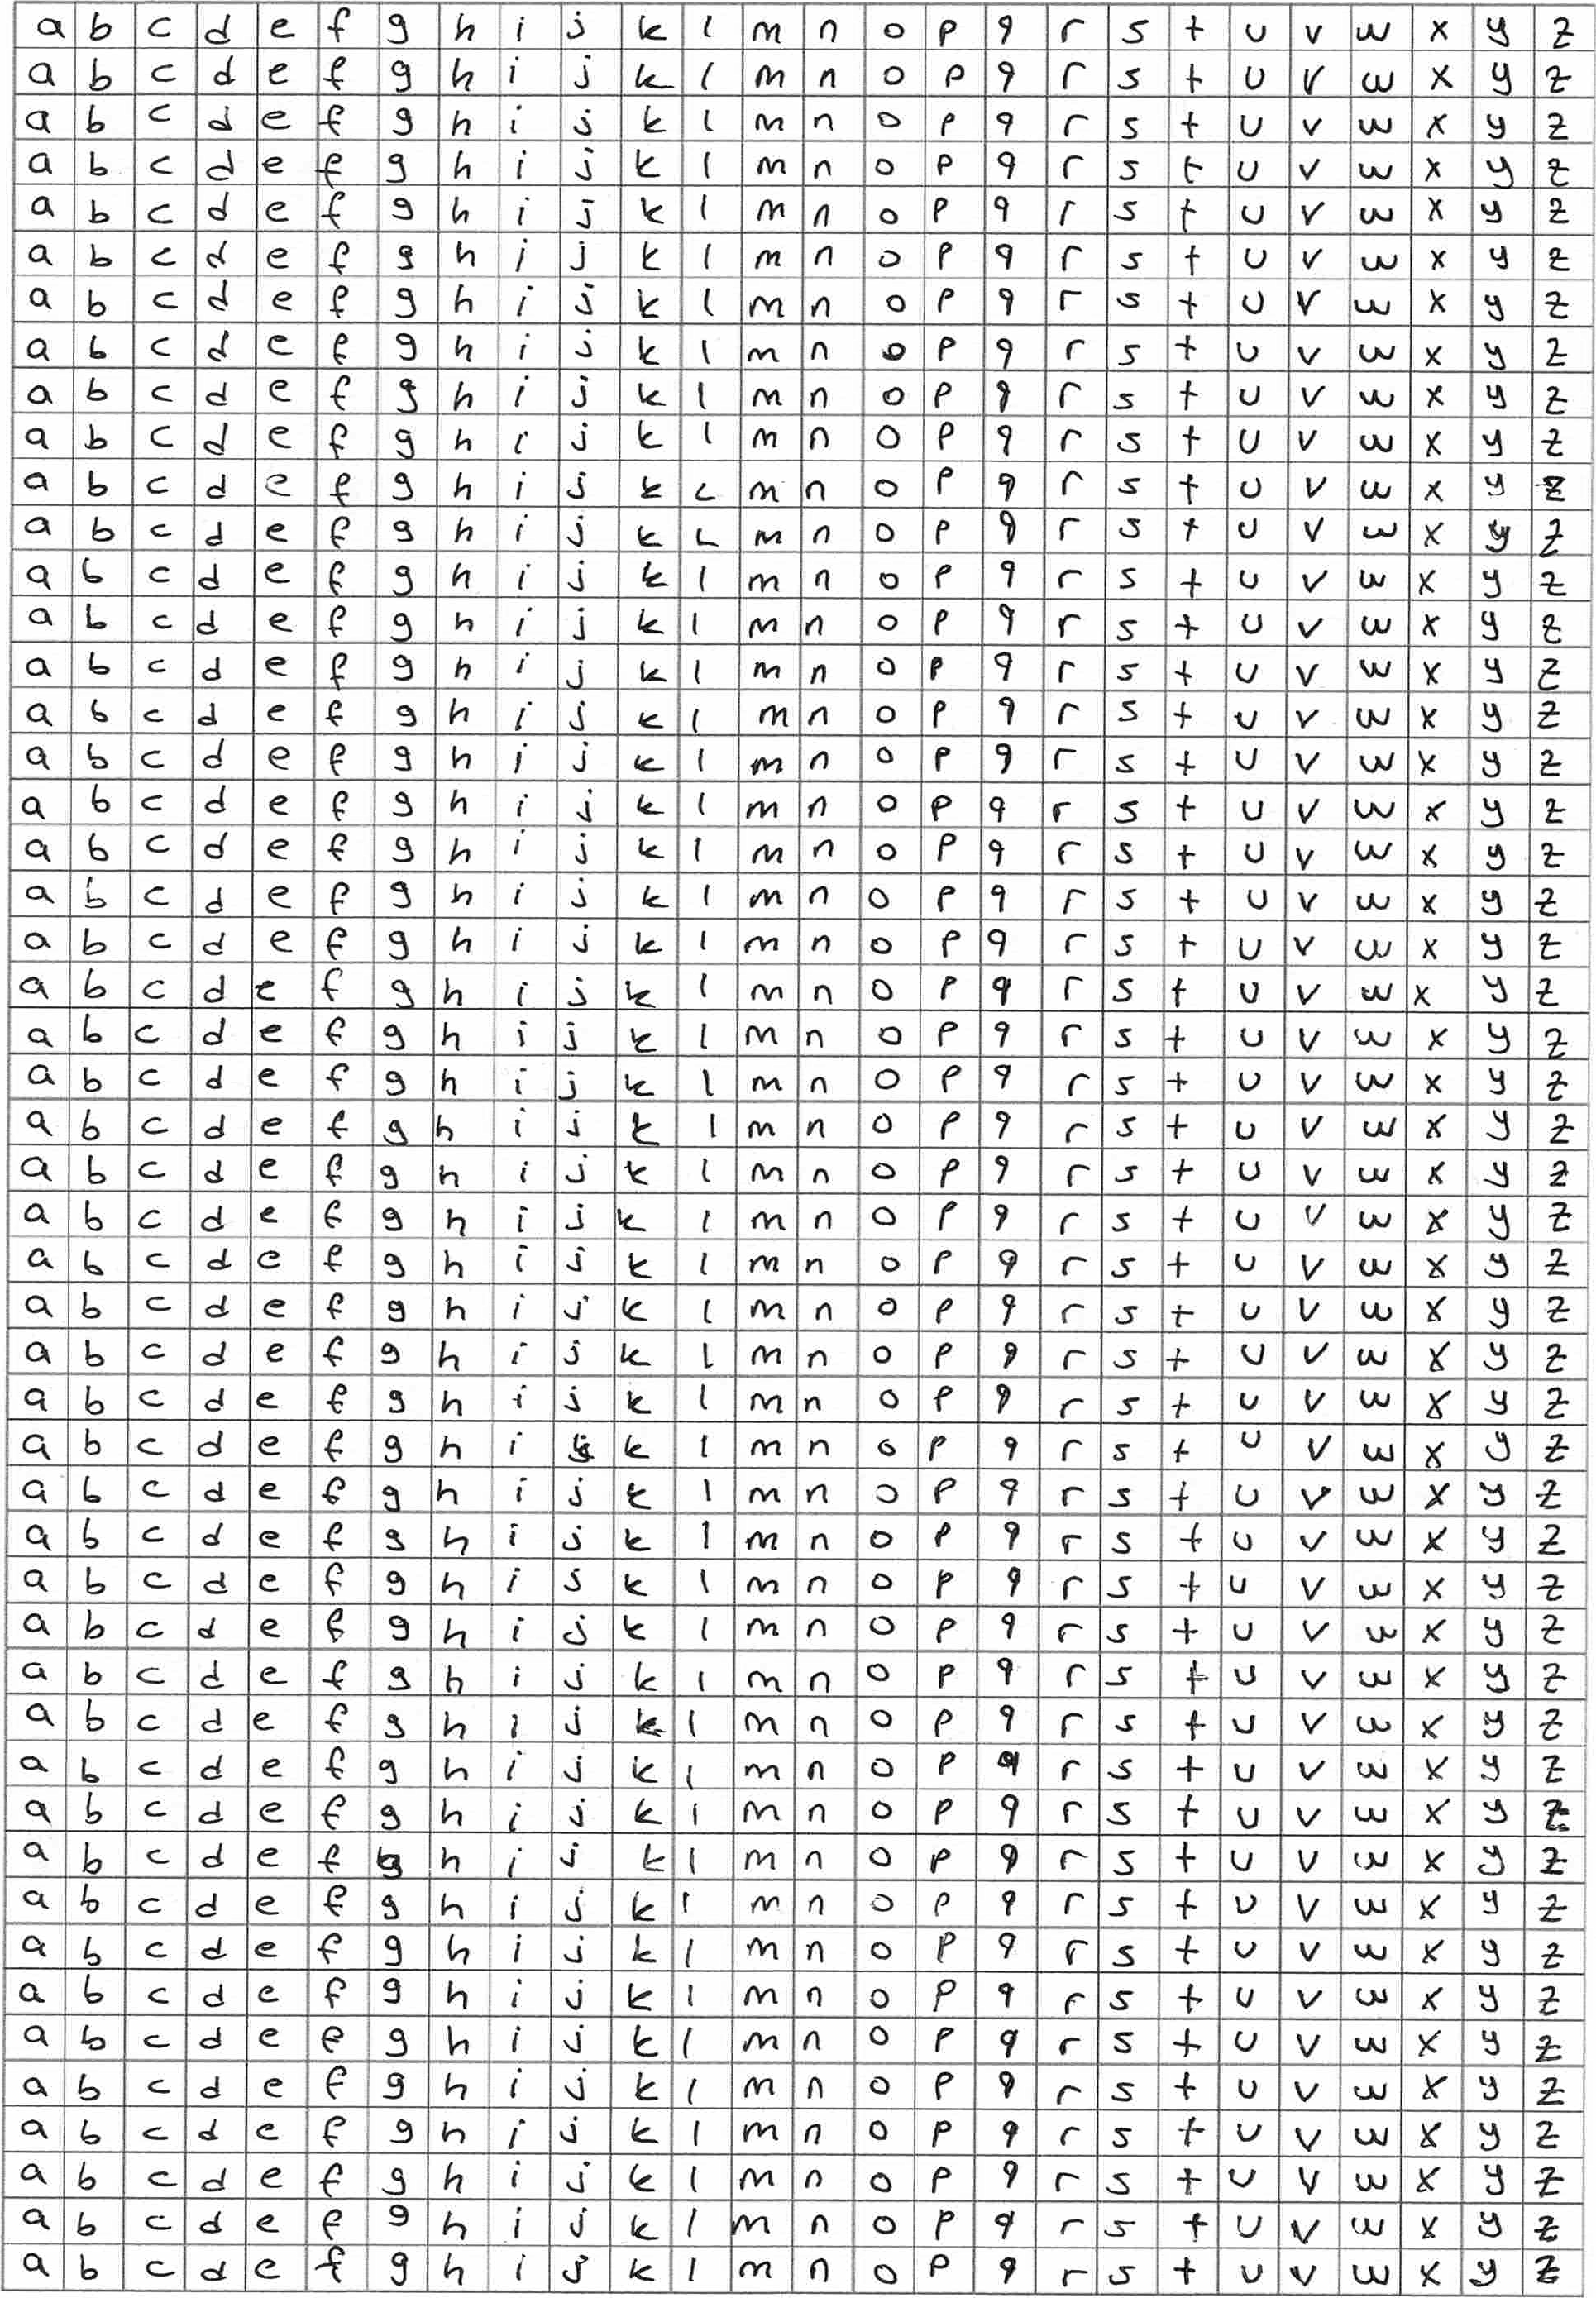 a b c d e f g h i j k l m n o p q r s t u v w x y z
a b c d e f g h i j k l m n o p q r s t u v w x y z
a b c d e f g h i j k l m n o p q r s t u v w x y z
a b c d e f g h i j k l m n o p q r s t u v w x y z
a b c d e f g h i j k l m n o p q r s t u v w x y z
a b c d e f g h i j k l m n o p q r s t u v w x y z
a b c d e f g h i j k l m n o p q r s t u v w x y z
a b c d e f g h i j k l m n o p q r s t u v w x y z
a b c d e f g h i j k l m n o p q r s t u v w x y z
a b c d e f g h i j k l m n o p q r s t u v w x y z
a b c d e f g h i j k L m n o p q r s t u v w x y z
a b c d e f g h i j k L m n o p q r s t u v w x y z
a b c d e f g h i j k l m n o p q r s t u v w x y z
a b c d e f g h i j k l m n o p q r s t u v w x y z
a b c d e f g h i j k l m n o p q r s t u v w x y z
a b c d e f g h i j k l m n o p q r s t u v w x y z
a b c d e f g h i j k l m n o p q r s t u v w x y z
a b c d e f g h i j k l m n o p q r s t u v w x y z
a b c d e f g h i j k l m n o p q r s t u v w x y z
a b c d e f g h i j k l m n o p q r s t u v w x y z
a b c d e f g h i j k l m n o p q r s t u v w x y z
a b c d e f g h i j k l m n o p q r s t u v w x y z
a b c d e f g h i j k l m n o p q r s t u v w x y z
a b c d e f g h i j k l m n o p q r s t u v w x y z
a b c d e f g h i j k l m n o p q r s t u v w x y z
a b c d e f g h i j k l m n o p q r s t u v w x y z
a b c d e f g h i j k l m n o p q r s t u v w x y z
a b c d e f g h i j k l m n o p q r s t u v w x y z
a b c d e f g h i j k l m n o p q r s t u v w x y z
a b c d e f g h i j k l m n o p q r s t u v w x y z
a b c d e f g h i j k l m n o p q r s t u v w x y z
a b c d e f g h i j k l m n o p q r s t u v w x y z
a b c d e f g h i j k l m n o p q r s t u v w x y z
a b c d e f g h i j k l m n o p q r s t u v w x y z
a b c d e f g h i j k l m n o p q r s t u v w x y z
a b c d e f g h i j k l m n o p q r s t u v w x y z
a b c d e f g h i j k l m n o p q r s t u v w x y z
a b c d e f g h i j k l m n o p q r s t u v w x y z
a b c d e f g h i j k l m n o p q r s t u v w x y z
a b c d e f g h i j k l m n o p q r s t u v w x y z
a b c d e f g h i j k l m n o p q r s t u v w x y z
a b c d e f g h i j k l m n o p q r s t u v w x y z
a b c d e f g h i j k l m n o p q r s t u v w x y z
a b c d e f g h i j k l m n o p q r s t u v w x y z
a b c d e f g h i j k l m n o p q r s t u v w x y z
a b c d e f g h i j k l m n o p q r s t u v w x y z
a b c d e f g h i j k l m n o p q r s t u v w x y z
a b c d e f g h i j k l m n o p q r s t u v w x y z
a b c d e f g h i j k l m n o p q r s t u v w x y z
a b c d e f g h i j k l m n o p q r s t u v w x y z